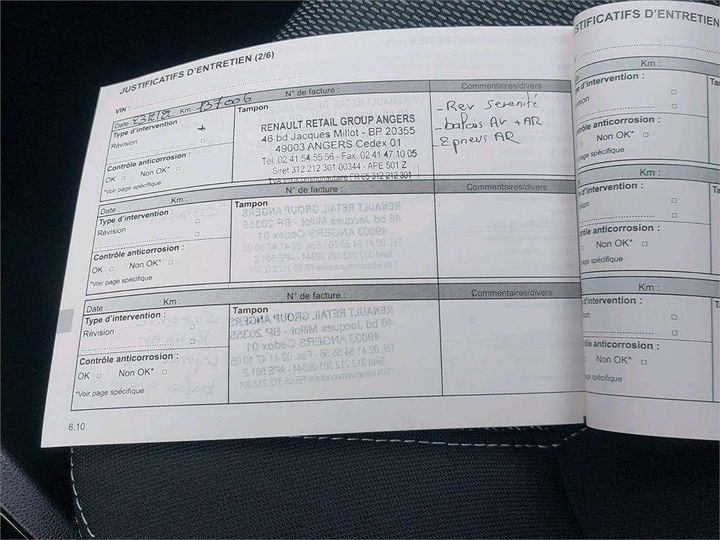 JUSTIFICATIFS D'ENTRETIEN (2/6)
VIN :
Date : Km : 137006
N° de facture :
Commentaires/divers
Type d'intervention :
Révision
Contrôle anticorrosion :
OK Non OK*
*Voir page spécifique
Tampon
RENAULT RETAIL GROUP ANGERS
46 bd Jacques Millot - BP 20355
49003 ANGERS Cedex 01
Tél: 02 41 54 55 56 - Fax. 02 41 47 10 05
Siret 312 212 301 00344 - APE 501 Z
TVA intracommunautaire FR 65 312 212 301
- Rev serenité
- balais AV + AR
- 2 pneus AR
Date : Km :
N° de facture :
Commentaires/divers
Type d'intervention :
Révision
Contrôle anticorrosion :
OK Non OK*
*Voir page spécifique
Tampon
Date : Km :
N° de facture :
Commentaires/divers
Type d'intervention :
Révision
Contrôle anticorrosion :
OK Non OK*
*Voir page spécifique
Tampon
6.10
STIFICATIFS D'ENTRETIEN
Km :
intervention :
anticorrosion :
Non OK*
spécifique
Km :
intervention :
anticorrosion :
Non OK*
spécifique
Km :
intervention :
anticorrosion :
Non OK*
spécifique